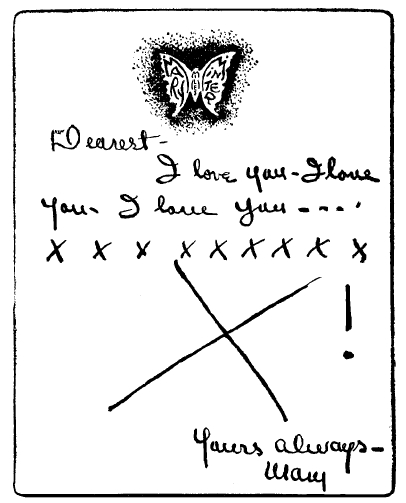 MARY MINTER
Dearest-
I love you - I love
you - I love you - - - - '
X X X X X X X X X
X !
Yours always-
Mary